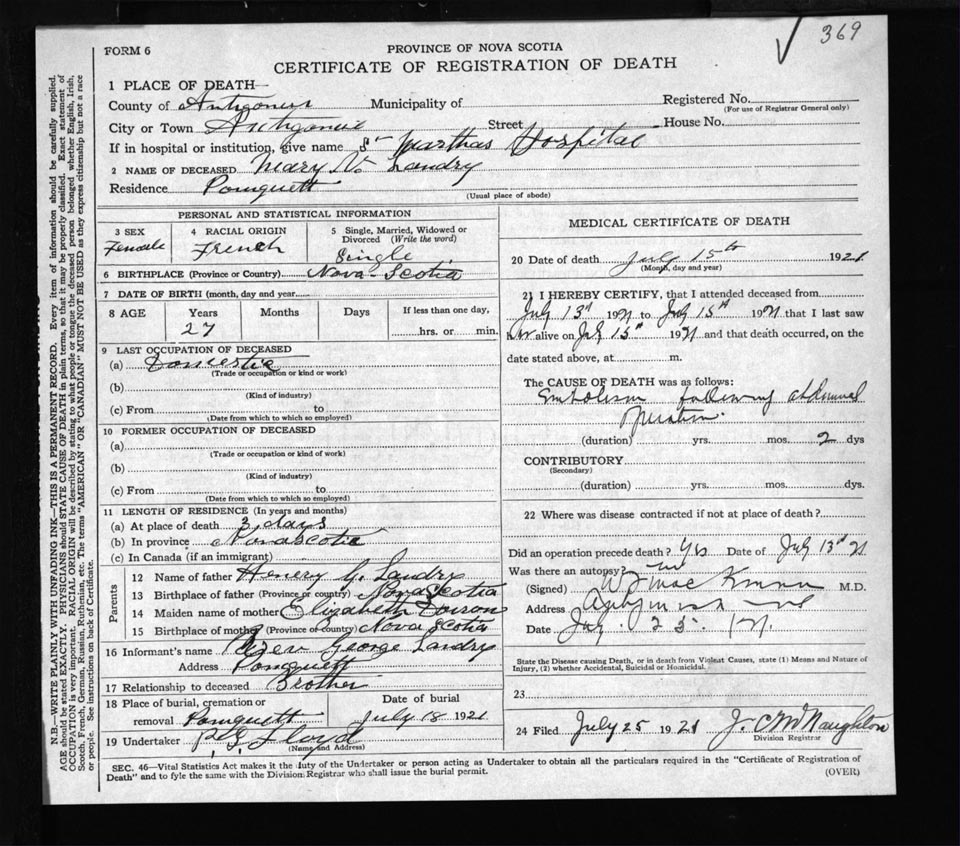 369
FORM 6
PROVINCE OF NOVA SCOTIA
CERTIFICATE OF REGISTRATION OF DEATH
1 PLACE OF DEATH—
County of Antigonish Municipality of Registered No.
(For use of Registrar General only)
City or Town Antigonish Street House No.
If in hospital or institution, give name St Marthas Hospital
2 NAME OF DECEASED Mary V. Landry
Residence Pomquett
(Usual place of abode)
PERSONAL AND STATISTICAL INFORMATION
3 SEX 4 RACIAL ORIGIN 5 Single, Married, Widowed or Divorced (Write the word)
Female French Single
6 BIRTHPLACE (Province or Country) Nova-Scotia
7 DATE OF BIRTH (month, day and year
8 AGE Years Months Days If less than one day,
27 hrs. or min.
9 LAST OCCUPATION OF DECEASED
(a) Domestic
(Trade or occupation or kind or work)
(b)
(Kind of industry)
(c) From to
(Date from which to which so employed)
10 FORMER OCCUPATION OF DECEASED
(a)
(Trade or occupation or kind of work)
(b)
(Kind of industry)
(c) From to
(Date from which to which so employed)
11 LENGTH OF RESIDENCE (In years and months)
(a) At place of death 3 days
(b) In province Nova Scotia
(c) In Canada (if an immigrant)
Parents
12 Name of father Henery Y. Landry
13 Birthplace of father (Province or country) Nova Scotia
14 Maiden name of mother Elizabeth
15 Birthplace of mother (Province or country) Nova Scotia
16 Informant's name George Landry
Address Pomquett
17 Relationship to deceased Brother
18 Place of burial, cremation or removal Pomquett
Date of burial
July 18 1921
19 Undertaker Floyd
(Name and Address)
MEDICAL CERTIFICATE OF DEATH
20 Date of death July 15th 1921
(Month, day and year)
21 I HEREBY CERTIFY, that I attended deceased from
July 13th 1921 to July 15th 1921 that I last saw
her alive on July 15th 1921 and that death occurred, on the
date stated above, at m.
The CAUSE OF DEATH was as follows:
Embolism following abdominal
operation
(duration) yrs. mos. 2 dys
CONTRIBUTORY
(Secondary)
(duration) yrs. mos. dys.
22 Where was disease contracted if not at place of death?
Did an operation precede death? Yes Date of July 13th 21
Was there an autopsy? no
(Signed) M.D.
Address
Date July 25.
State the Disease causing Death, or in death from Violent Causes, state (1) Means and Nature of
Injury, (2) whether Accidental, Suicidal or Homicidal.
23
24 Filed July 25 1921 J. C McNaughton
Division Registrar
SEC. 46—Vital Statistics Act makes it the duty of the Undertaker or person acting as Undertaker to obtain all the particulars required in the "Certificate of Registration of
Death" and to fyle the same with the Division Registrar who shall issue the burial permit. (OVER)
N.B.—WRITE PLAINLY WITH UNFADING INK—THIS IS A PERMANENT RECORD. Every item of information should be carefully supplied.
AGE should be stated EXACTLY. PHYSICIANS should STATE CAUSE OF DEATH in plain terms, so that it may be properly classified. Exact statement of
OCCUPATION is very important. RACIAL ORIGIN will be described by stating to what people or tongue the deceased person belonged whether English, Irish,
Scotch, French, German, Russian, Ruthenian, etc. The terms "AMERICAN" OR "CANADIAN" MUST NOT BE USED as they express citizenship but not a race
or people. See instructions on back of Certificate.